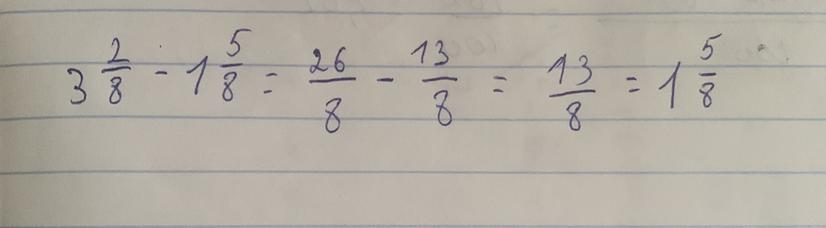 3 2/8 - 1 5/8 = 26/8 - 13/8 = 13/8 = 1 5/8